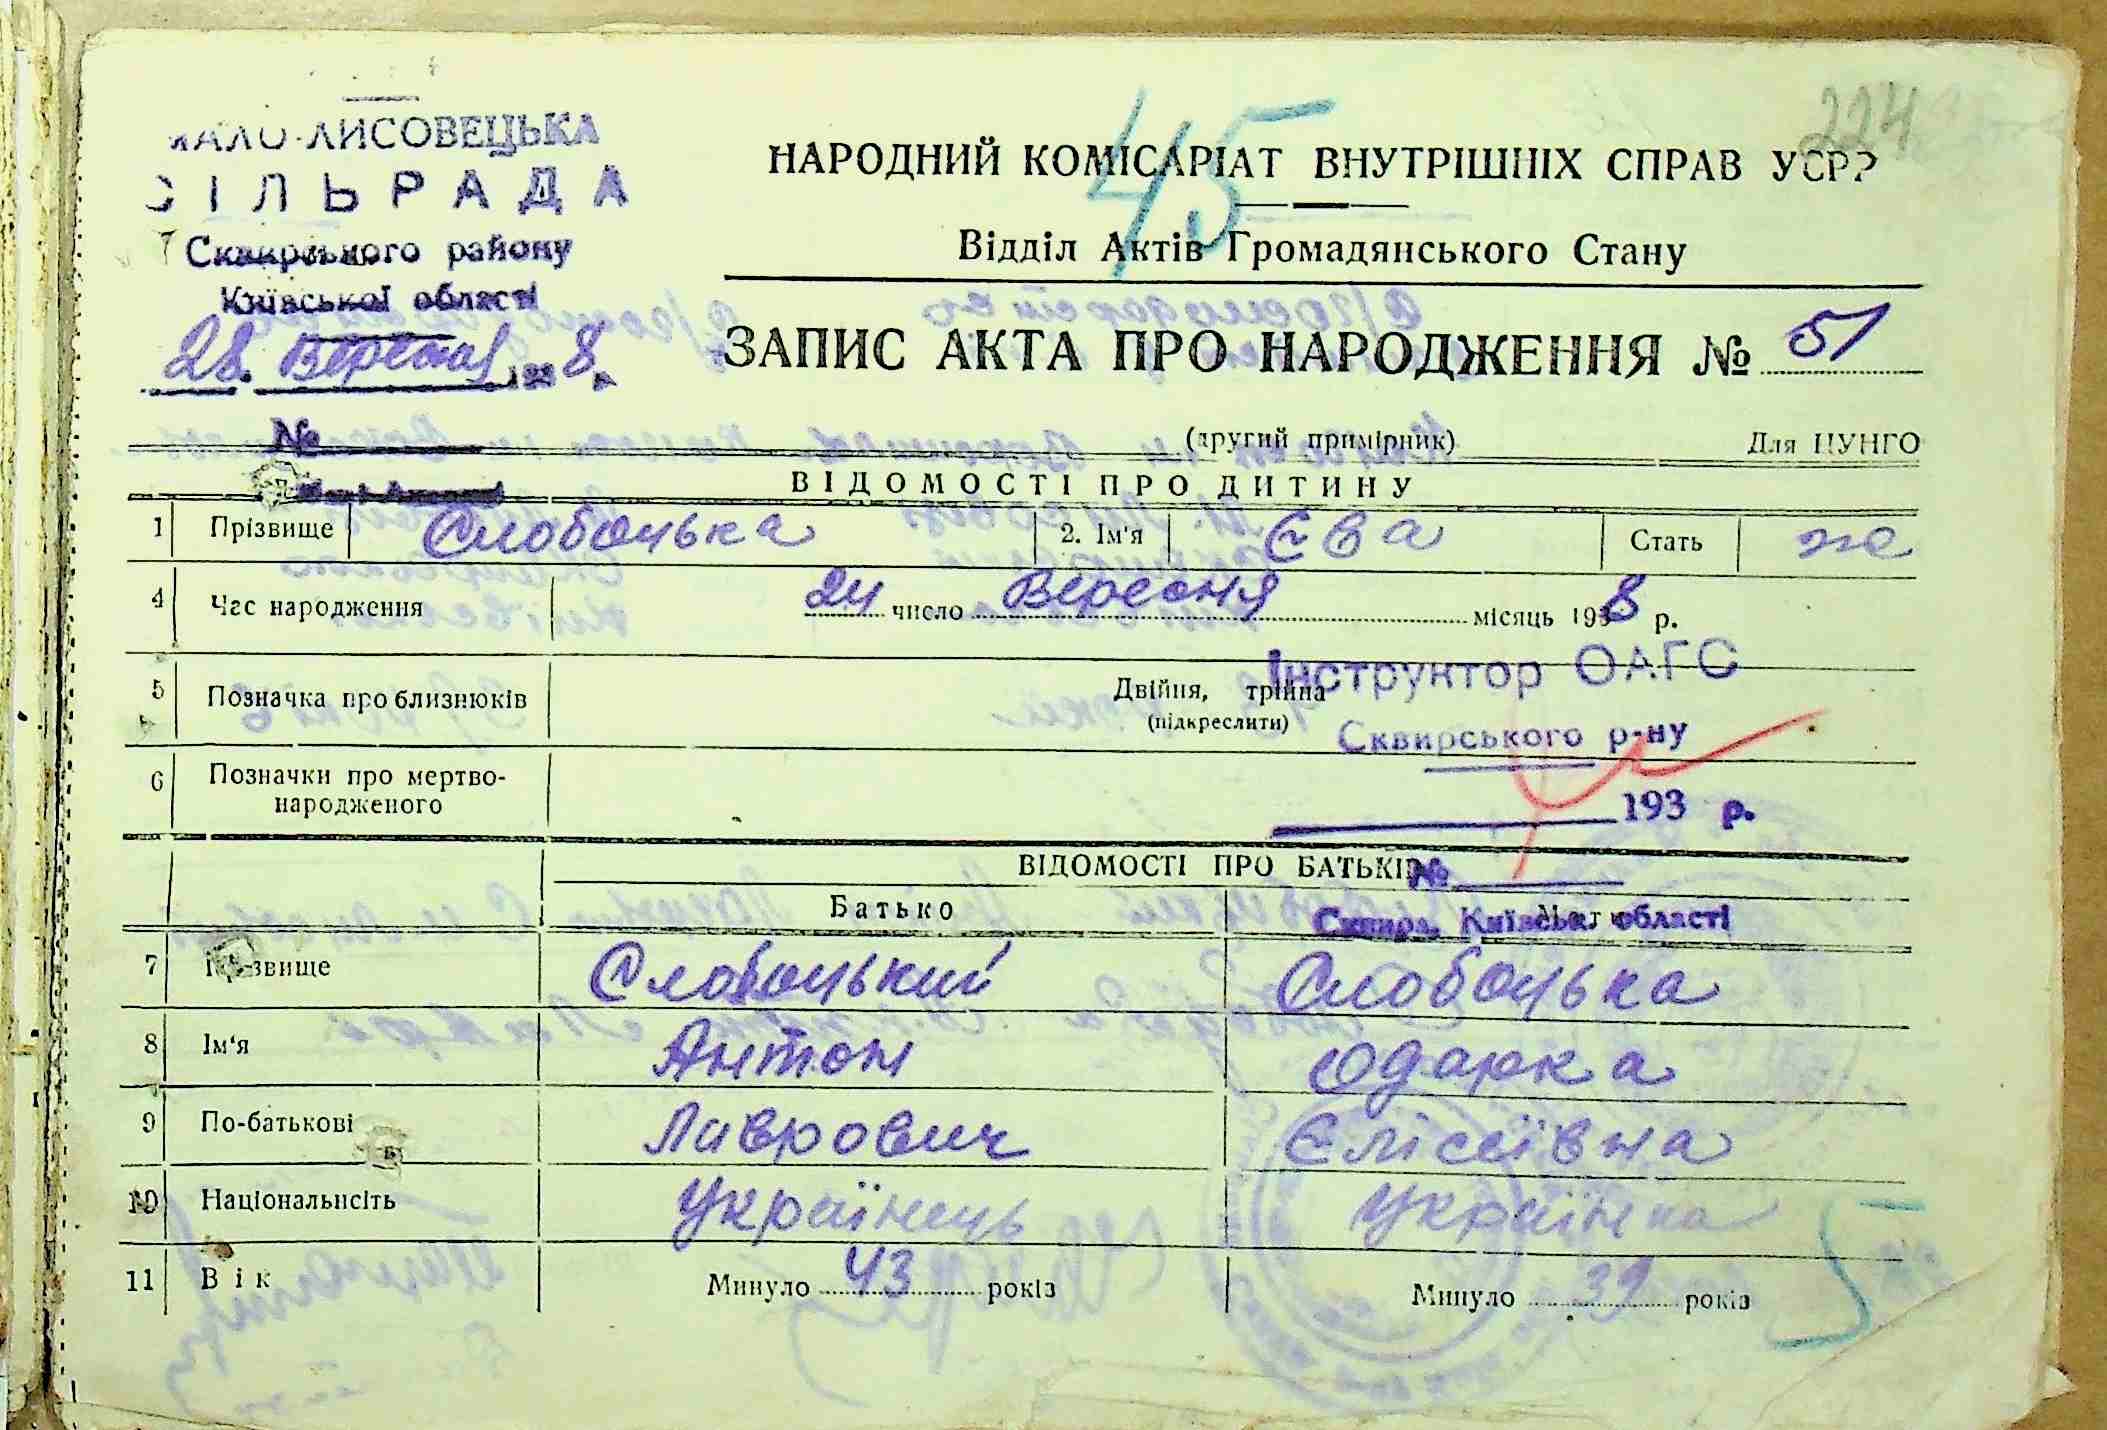 МАЛО-ЛИСОВЕЦЬКА
СІЛЬРАДА
Сквирського району
Київської області
28 Вересня 1938 р.
№
224
45
НАРОДНИЙ КОМІСАРІАТ ВНУТРІШНІХ СПРАВ УСРР
Відділ Актів Громадянського Стану
ЗАПИС АКТА ПРО НАРОДЖЕННЯ № 51
(другий примірник) Для ЦУНГО
ВІДОМОСТІ ПРО ДИТИНУ
1 Прізвище Слобоцька 2. Ім'я Єва Стать ж
4 Час народження 24 число Вересня місяць 1938 р.
5 Позначка про близнюків Двійня, трійня
(підкреслити)
Інструктор ОАГС
Сквирського р-ну
6 Позначки про мертво-
народженого
193 р.
№
Сквира, Київської області
ВІДОМОСТІ ПРО БАТЬКІВ
Батько Мати
7 Прізвище Слобоцький Слобоцька
8 Ім'я Антон Одарка
9 По-батькові Лаврович Єлісеївна
10 Національність Українець Українка
11 Вік Минуло 43 років Минуло 39 років
5